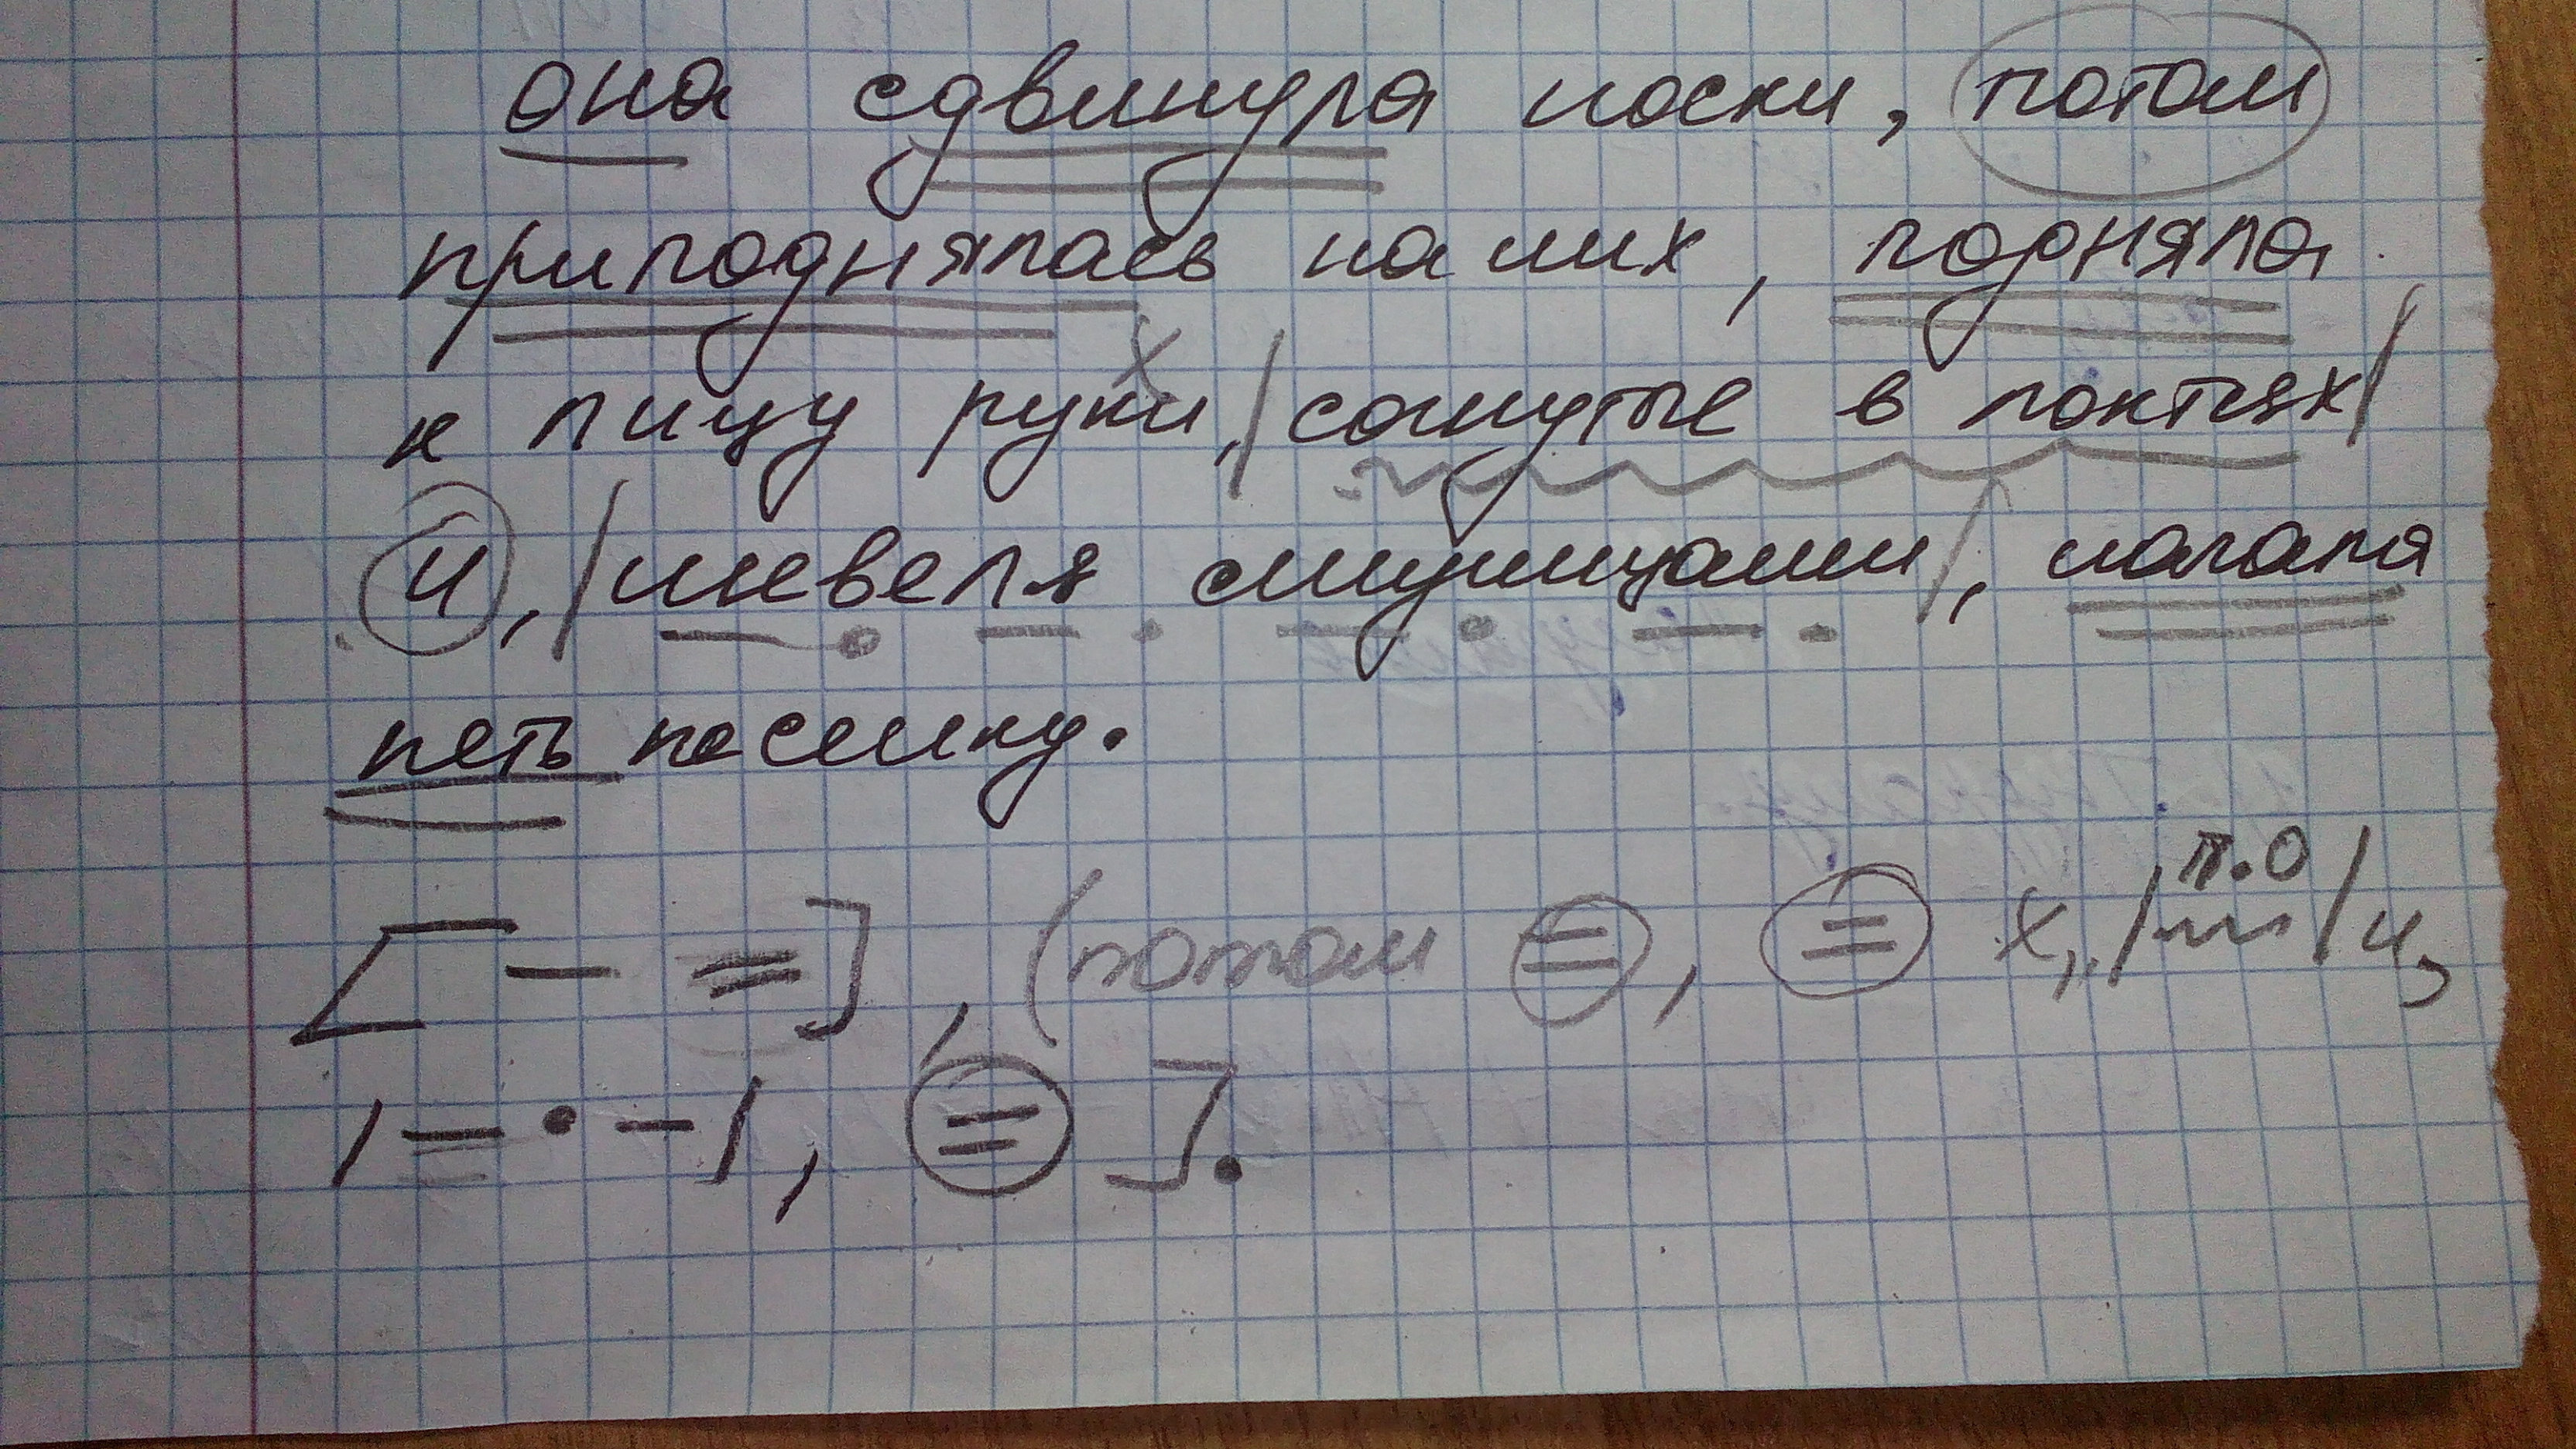 она сдвинула носки, потом
приподнялась на них, подняла
х
к лицу руки, /согнутые в локтях/
и, /шевеля /, начала
петь песенку.
п.о
[— =], (потом =, = х, /~~~/ и,
/= • —/, = ].